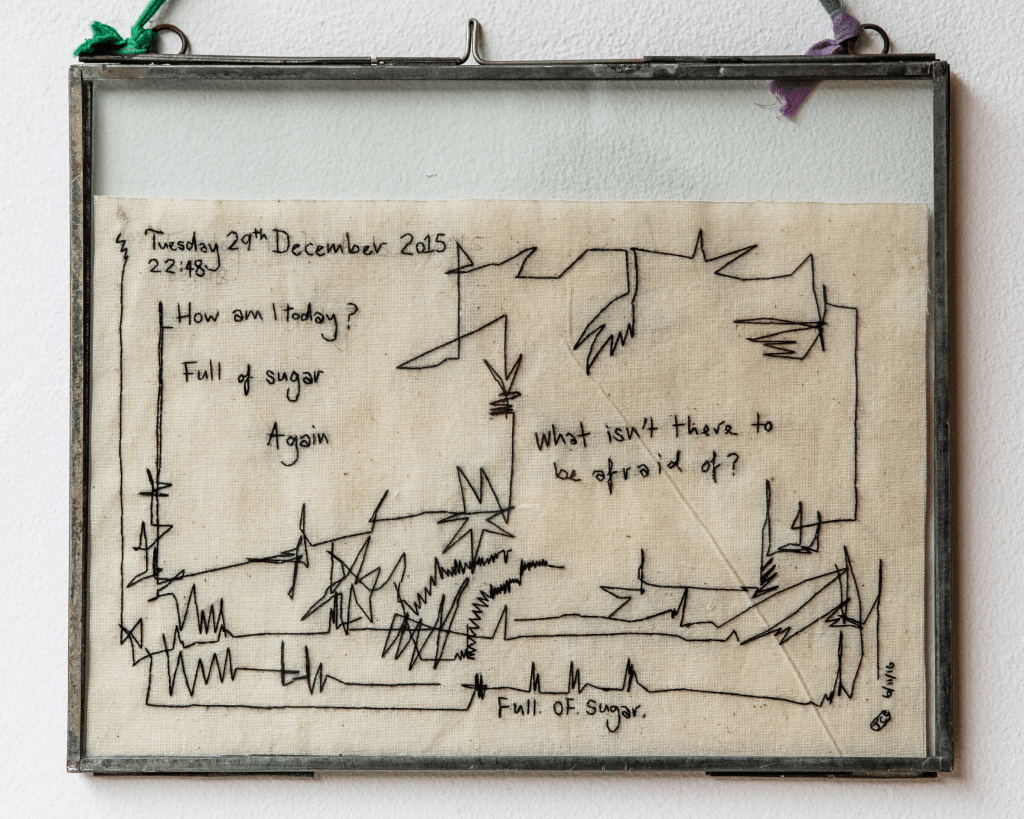 Tuesday 29th December 2015
22:48
How am I today?
Full of sugar
Again
What isn't there to
be afraid of?
Full. Of. Sugar.
6/11/16